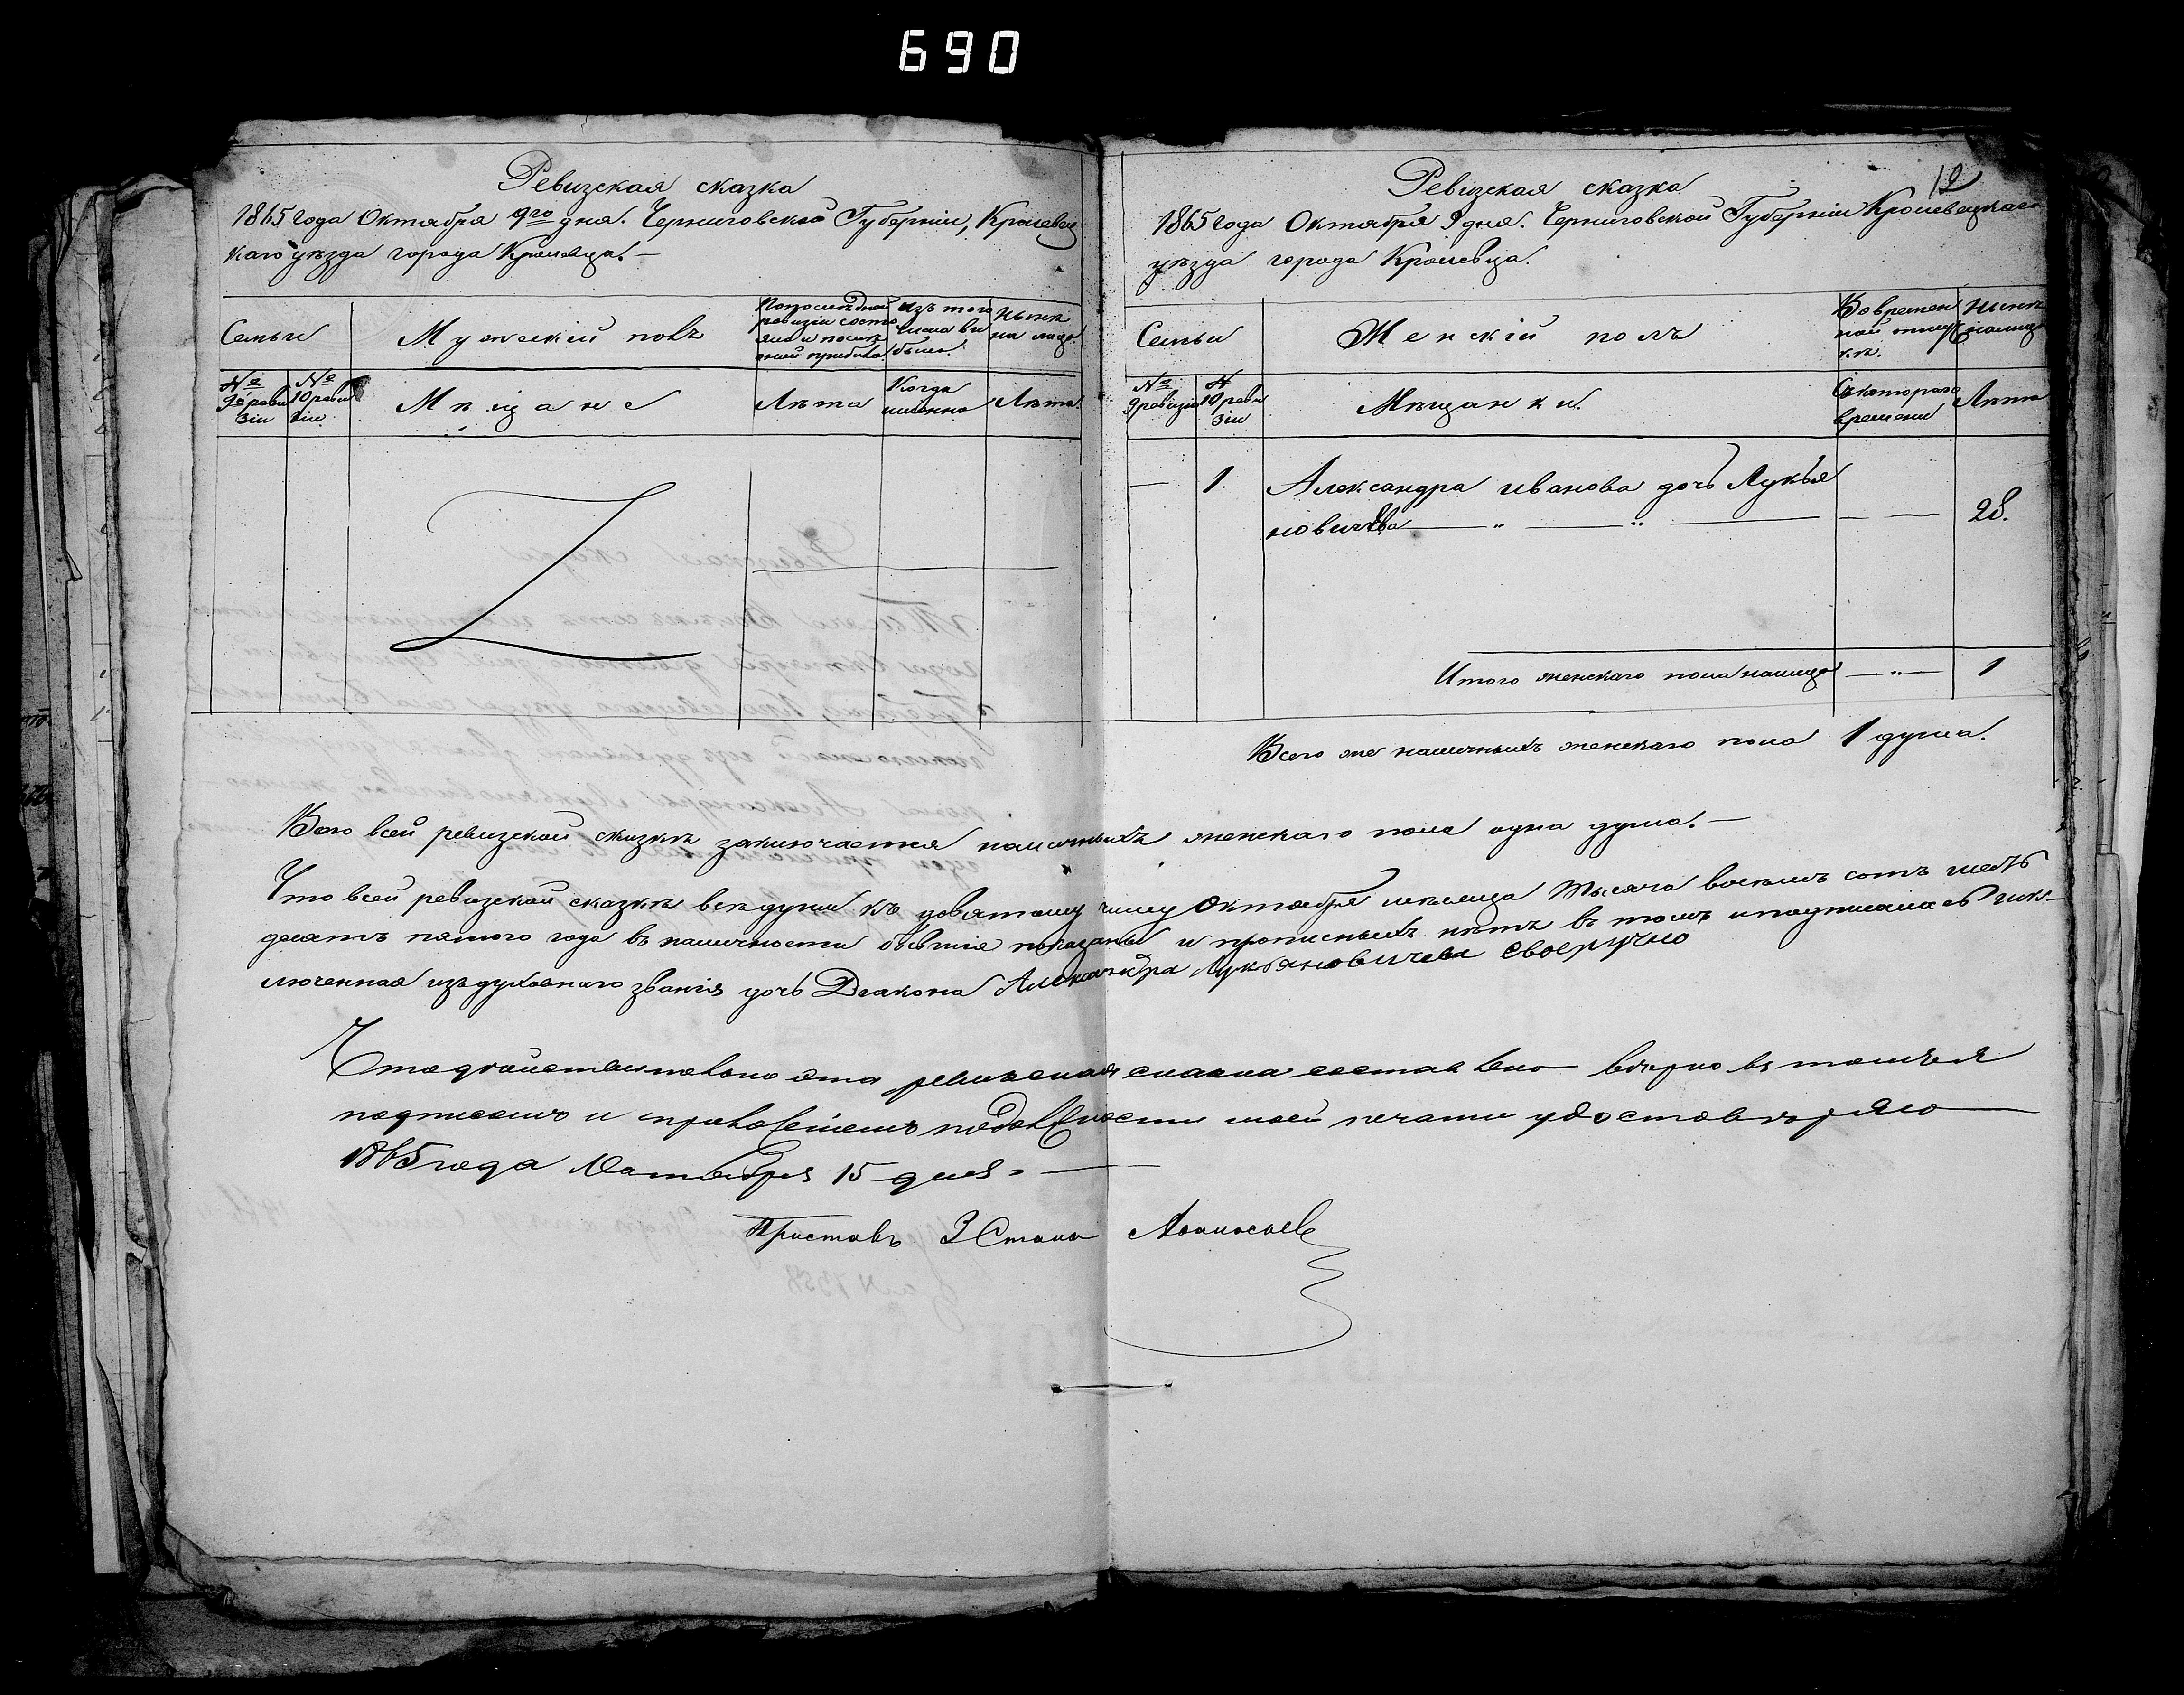 690
Ревизская сказка
1865 года Октября 9го дня. Черниговской Губерніи, Кролевец
каго уѣзда города Кролевца. —
Семьи
Мужескій полъ
По последней
ревизіи состо
яло и после
оной прибыло.
Изъ того
числа вы
было.
Нынѣ
на лицо
№ 9й реви
зіи
№ 10 реви
зіи
Мѣщане
Лѣта
Когда
именно
Лѣта.
Ревизская сказка
12
1865 года Октября 9 дня. Черниговской Губерніи Кролевецкаго
уѣзда города Кролевца.
Семьи
Женскій полъ
Во времен
ной отлуч
кѣ.
Нынѣ
налицо
№ 9 ревизіи
№ 10 реви
зіи
Мѣщанки.
Съ котораго
времени
Лѣта
— 1. Александра Иванова дочь Лукья
новичева — " — " — — — 28.
Итого женскаго пола налицо — " — 1
Всего же наличныхъ женскаго пола 1 душа.
Всего всей ревизской сказкѣ заключается наличныхъ женскаго пола одна душа. —
Что всей ревизской сказкѣ всѣ души къ девятому числу Октября мѣсяца Тысяча восемь сотъ шесть
десятъ пятого года въ наличности бывшіе показаны и прописныхъ нѣтъ въ томъ и подписалась изк-
люченная изъ духовнаго званія дочь Діакона Александра Лукьяновичева своеручно
Что действительно эта ревизская сказка составлено вѣрно въ томъ я
подписомъ и приложеніемъ должности моей печати удостовѣряю —
1865 года Октября 15 дня. —
Приставъ 3 Стана